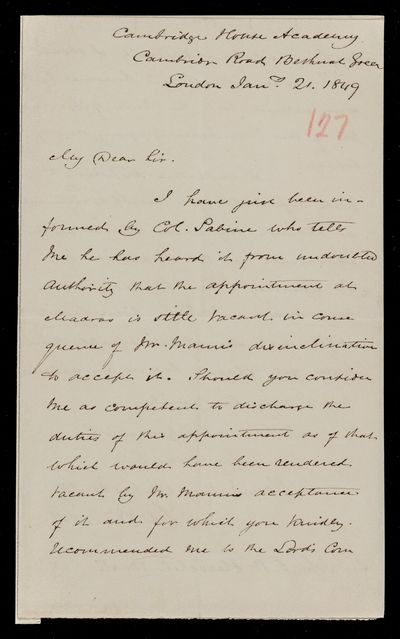 Cambridge House Academy
Cambridge Road Bethnal Green
London Jany. 21. 1849
127
My Dear Sir.
I have just been in-
formed by Col. Sabine who tells
me he has heard it from undoubted
Authority that the appointment at
Madras is still vacant in conse
quence of Mr. Mann's disinclination
to accept it. Should you consider
me as competent to discharge the
duties of this appointment as of that
which would have been rendered
vacant by Mr. Manns acceptance
of it and for which you kindly
recommended me to the Lords Com